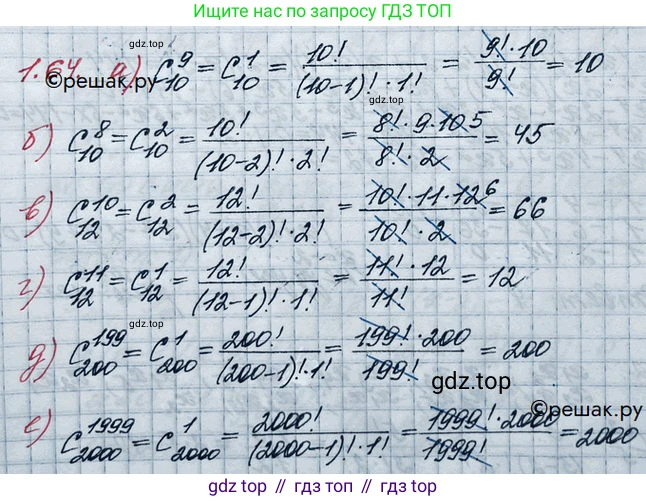 Ищите нас по запросу ГДЗ ТОП
1.64. а) C₁₀⁹ = C₁₀¹ = 10! / ((10-1)! · 1!) = 9! · 10 / 9! = 10
©решак.ру
gdz.top
б) C₁₀⁸ = C₁₀² = 10! / ((10-2)! · 2!) = 8! · 9 · 10 5 / 8! · 2 = 45
в) C₁₂¹⁰ = C₁₂² = 12! / ((12-2)! · 2!) = 10! · 11 · 12 6 / 10! · 2 = 66
г) C₁₂¹¹ = C₁₂¹ = 12! / ((12-1)! · 1!) = 11! · 12 / 11! = 12
д) C₂₀₀¹⁹⁹ = C₂₀₀¹ = 200! / ((200-1)! · 1!) = 199! · 200 / 199! = 200
gdz.top
©решак.ру
е) C₂₀₀₀¹⁹⁹⁹ = C₂₀₀₀¹ = 2000! / ((2000-1)! · 1!) = 1999! · 2000 / 1999! = 2000
gdz.top gdz.top gdz.top